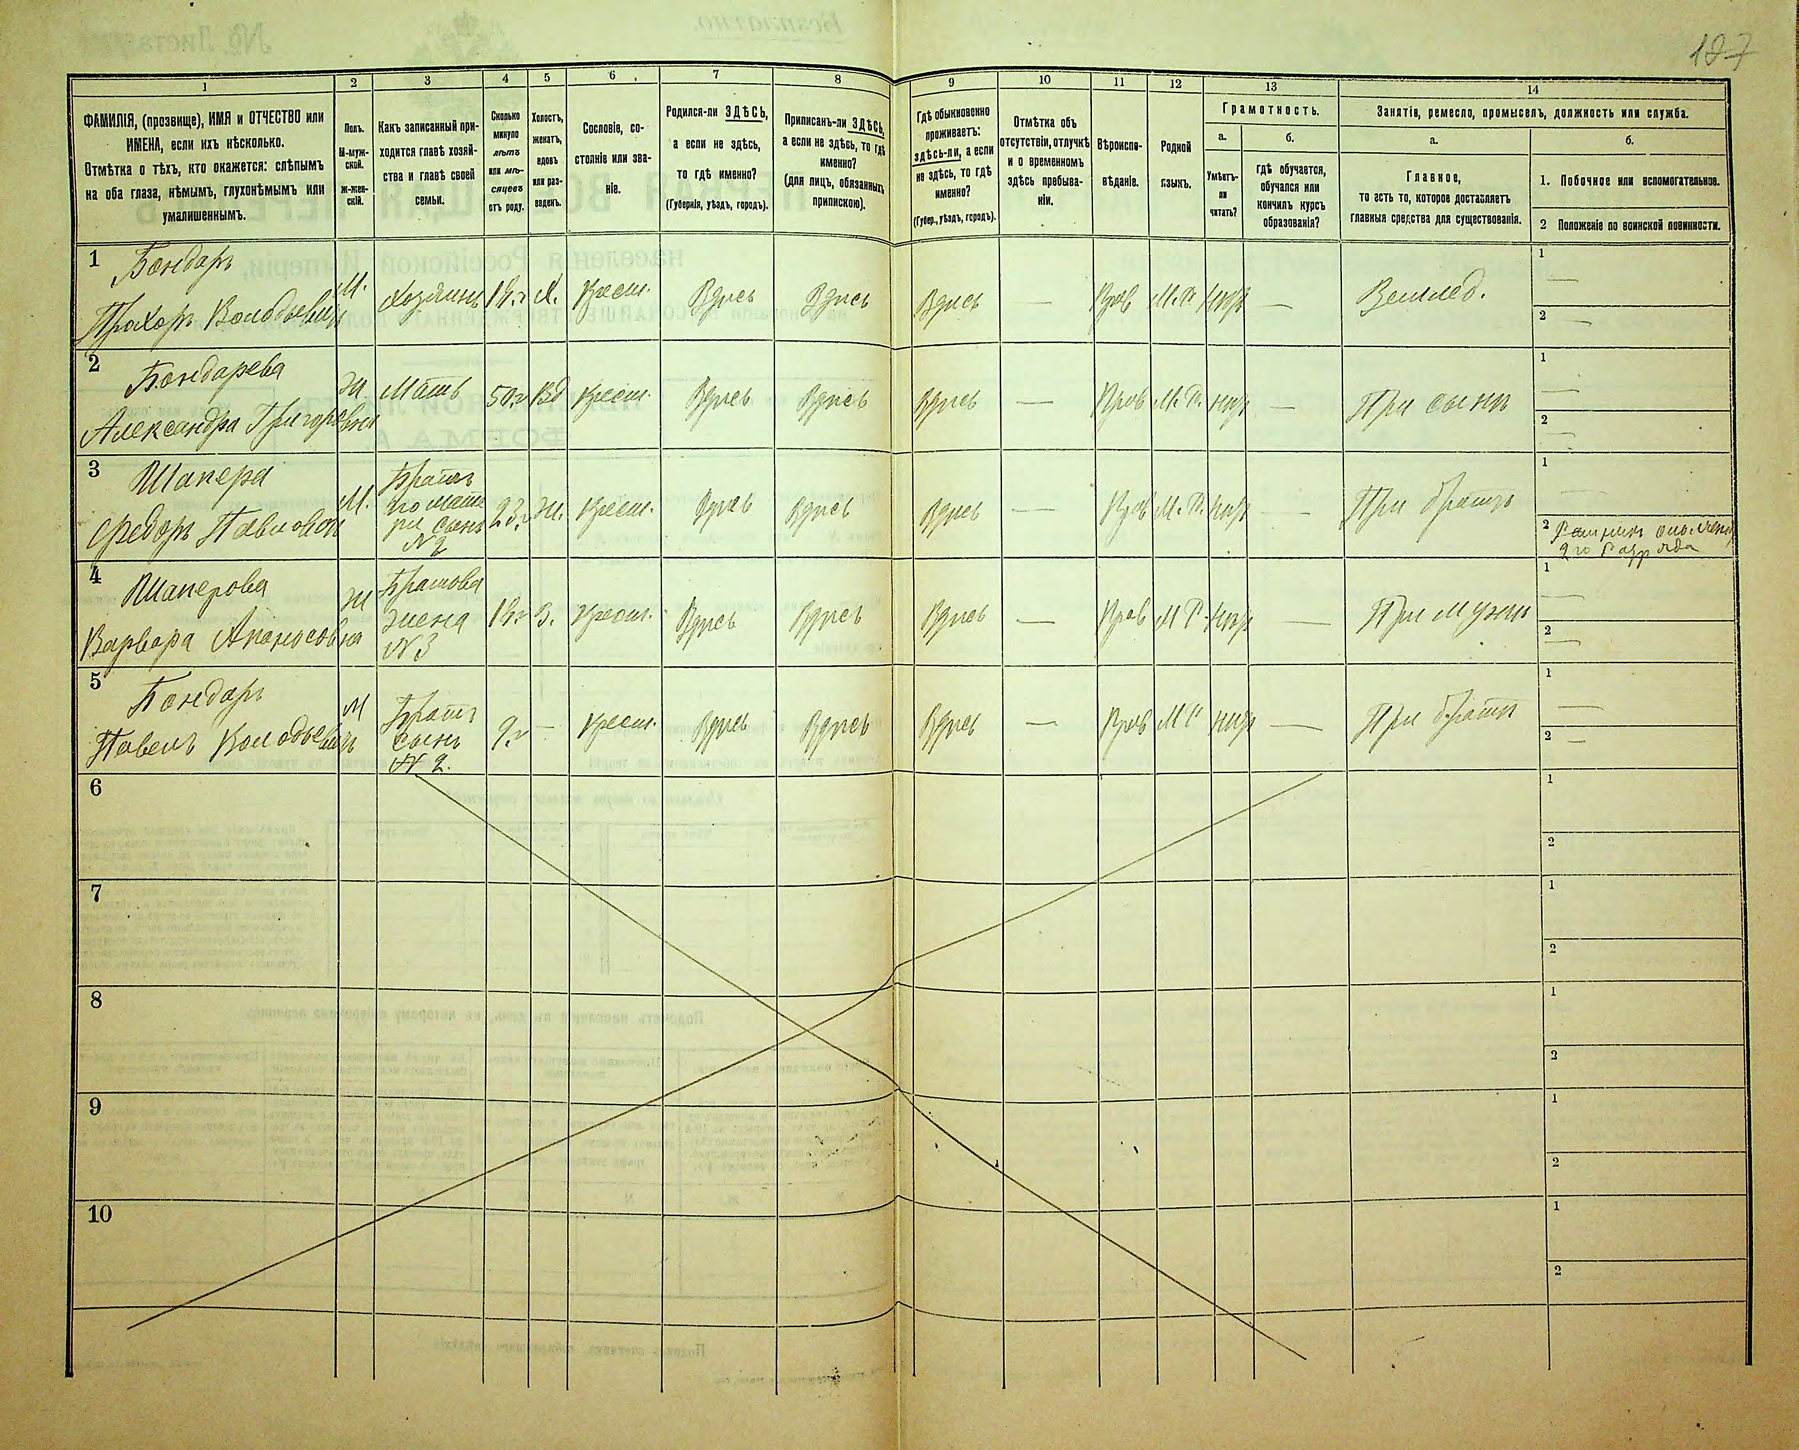 197
1 2 3 4 5 6 7 8 9 10 11 12 13 14
ФАМИЛІЯ, (прозвище), ИМЯ и ОТЧЕСТВО или
ИМЕНА, если ихъ нѣсколько.
Отмѣтка о тѣхъ, кто окажется: слѣпымъ
на оба глаза, нѣмымъ, глухонѣмымъ или
умалишеннымъ.
Полъ.
М-муж-
ской.
Ж-жен-
скій.
Какъ записанный при-
ходится главѣ хозяй-
ства и главѣ своей
семьи.
Сколько
минуло
лѣтъ
или мѣ-
сяцевъ
отъ роду.
Холостъ,
женатъ,
вдовъ
или раз-
веденъ.
Сословіе, со-
стояніе или зва-
ніе.
Родился-ли ЗДѢСЬ,
а если не здѣсь,
то гдѣ именно?
(Губернія, уѣздъ, городъ).
Приписанъ-ли ЗДѢСЬ,
а если не здѣсь, то гдѣ
именно?
(для лицъ, обязанныхъ
припискою).
Гдѣ обыкновенно
проживаетъ:
здѣсь-ли, а если
не здѣсь, то гдѣ
именно?
(Губер., уѣздъ, городъ).
Отмѣтка объ
отсутствіи, отлучкѣ
и о временномъ
здѣсь пребыва-
ніи.
Вѣроиспо-
вѣданіе.
Родной
языкъ.
Грамотность.
а.
Умѣетъ-
ли
читать?
б.
Гдѣ обучается,
обучался или
кончилъ курсъ
образованія?
Занятія, ремесло, промыселъ, должность или служба.
а.
Главное,
то есть то, которое доставляетъ
главныя средства для существованія.
б.
1. Побочное или вспомогательное.
2 Положеніе по воинской повинности.
1 Бондарь
Прохоръ
М. Хозяинъ 19 г Х. Крест. Здѣсь Здѣсь Здѣсь — Прав М. Р. — Землед.
1 —
2 —
2 Бондарева
Александра Григоровна
Ж. Мать 50 г Вд Крест. Здѣсь Здѣсь Здѣсь — Прав М. Р. — При сынѣ
1 —
2 —
3 Шапера
Федоръ Павловъ
М. Братъ
по мате
ри сынъ
№ 2
23 г Ж. Крест. Здѣсь Здѣсь Здѣсь — Прав М. Р. — При братѣ
1 —
2 Ратникъ ополчен
2 го Разряда
4 Шаперова
Варвара Апанасовна
Ж Братова
жена
№ 3
19 г З. Крест. Здѣсь Здѣсь Здѣсь — Прав М Р. — При мужѣ
1 —
2 —
5 Бондарь
Павелъ
М Братъ
сынъ
№ 2.
9 г — Крест. Здѣсь Здѣсь Здѣсь — Прав М Р — При братѣ
1 —
2 —
6 1
2
7 1
2
8 1
2
9 1
2
10 1
2